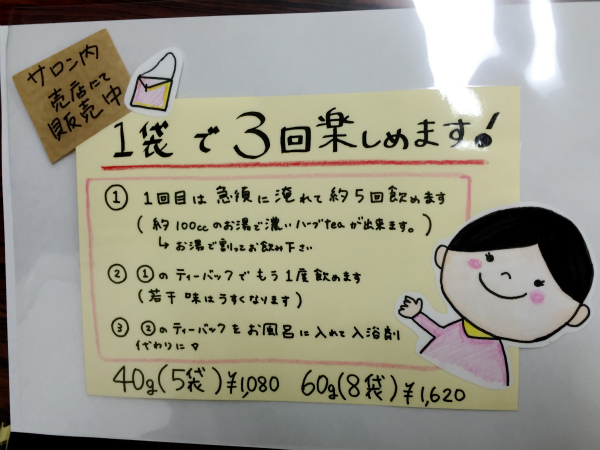 サロン内
売店にて
販売中
1袋で3回楽しめます!
① 1回目は急須に淹れて約5回飲めます
(約100ccのお湯で濃いハーブteaが出来ます。)
↳ お湯で割ってお飲み下さい
② ①のティーバックでもう1度飲めます
(若干味はうすくなります)
③ ②のティーバックをお風呂に入れて入浴剤
代わりに♡
40g(5袋)¥1,080 60g(8袋)¥1,620